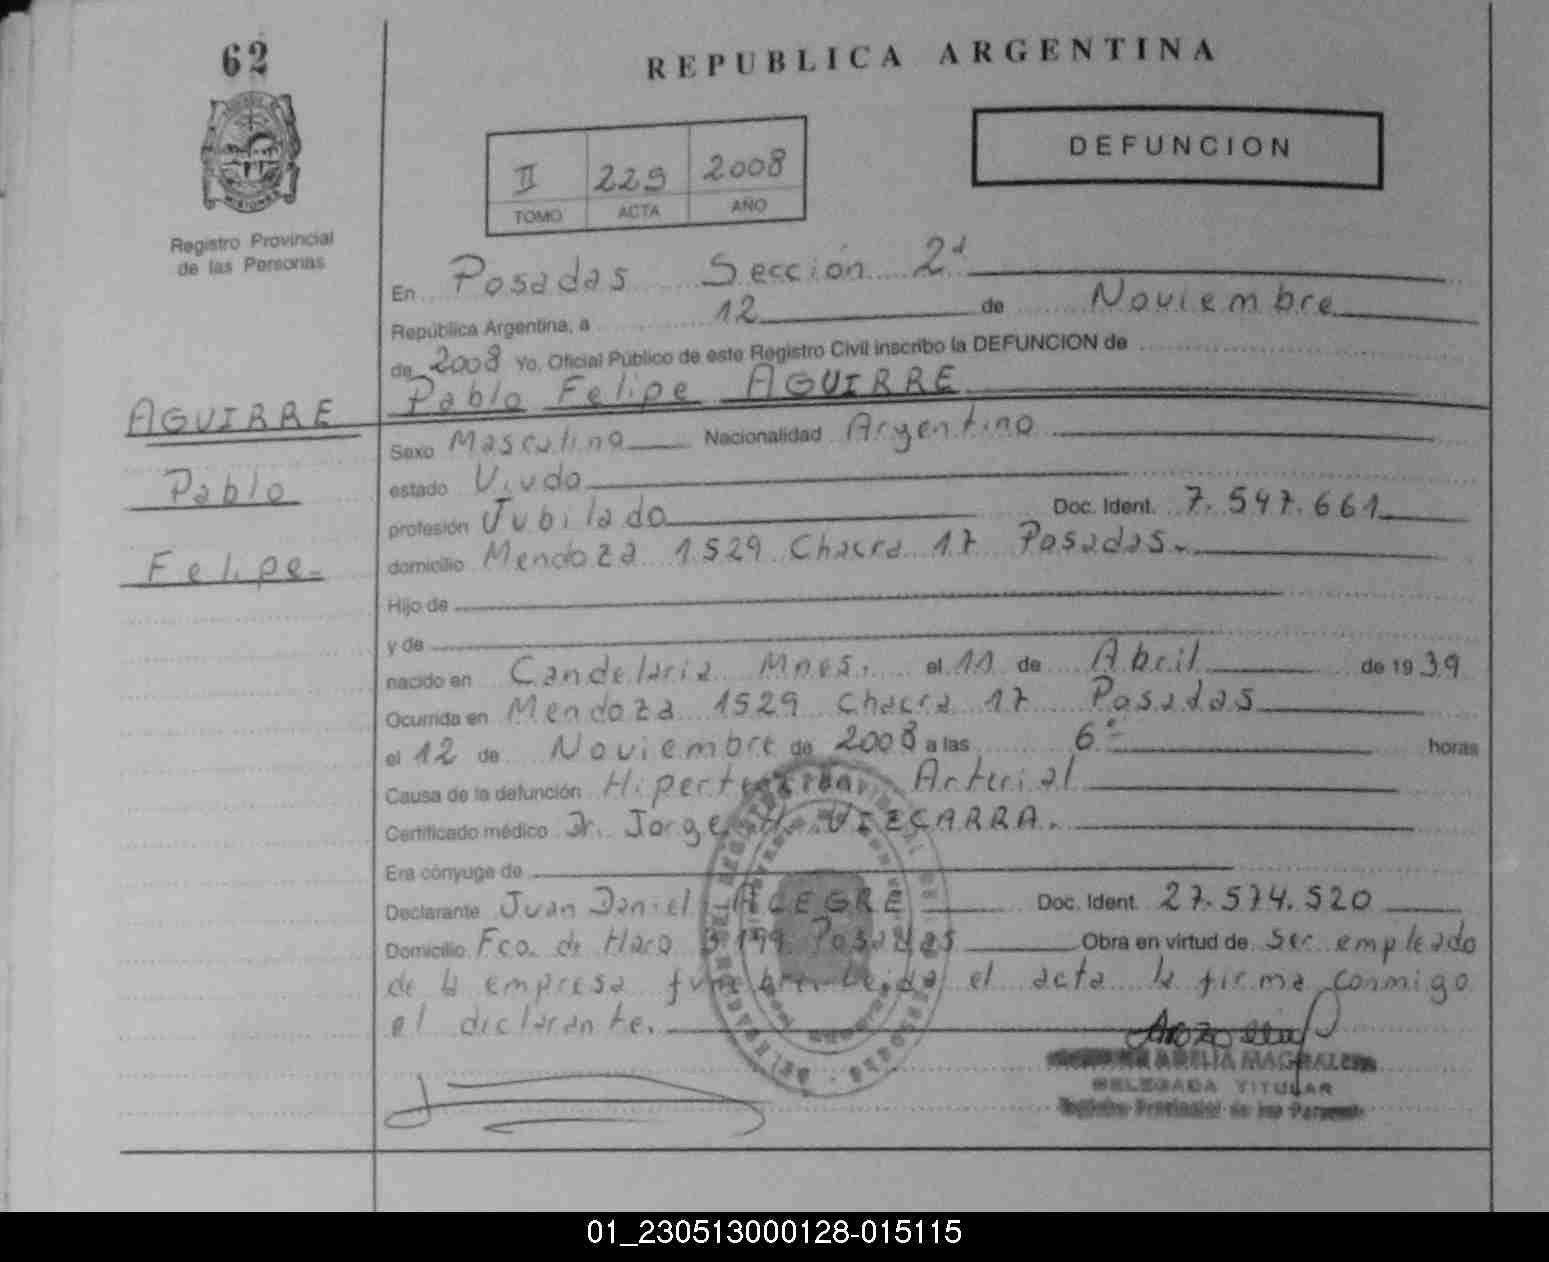 62
REPUBLICA ARGENTINA
DEFUNCION
II 229 2008
TOMO ACTA AÑO
Registro Provincial
de las Personas
En Posadas Sección 2ª
República Argentina, a 12 de Noviembre
de 2008 Yo, Oficial Público de este Registro Civil inscribo la DEFUNCION de
Pablo Felipe AGUIRRE
AGUIRRE
Pablo
Felipe
Sexo Masculino Nacionalidad Argentino
estado Viudo
profesión Jubilado Doc. Ident. 7.597.661
domicilio Mendoza 1529 Chacra 17 Posadas.
Hijo de
y de
nacido en Candelaria Mnes. el 11 de Abril de 1939
Ocurrida en Mendoza 1529 Chacra 17 Posadas
el 12 de Noviembre de 2008 a las 6 horas
Causa de la defunción Hipertension Arterial
Certificado médico Dr. Jorge VIECARRA.
Era cónyuge de
Declarante Juan Daniel ALEGRE Doc. Ident. 27.574.520
Domicilio Fco. de Haro Posadas Obra en virtud de Ser empleado
de la empresa funebre leida el acta la firma conmigo
el declarante.
DELEGADA TITULAR
Registro Provincial de las Personas
01_230513000128-015115